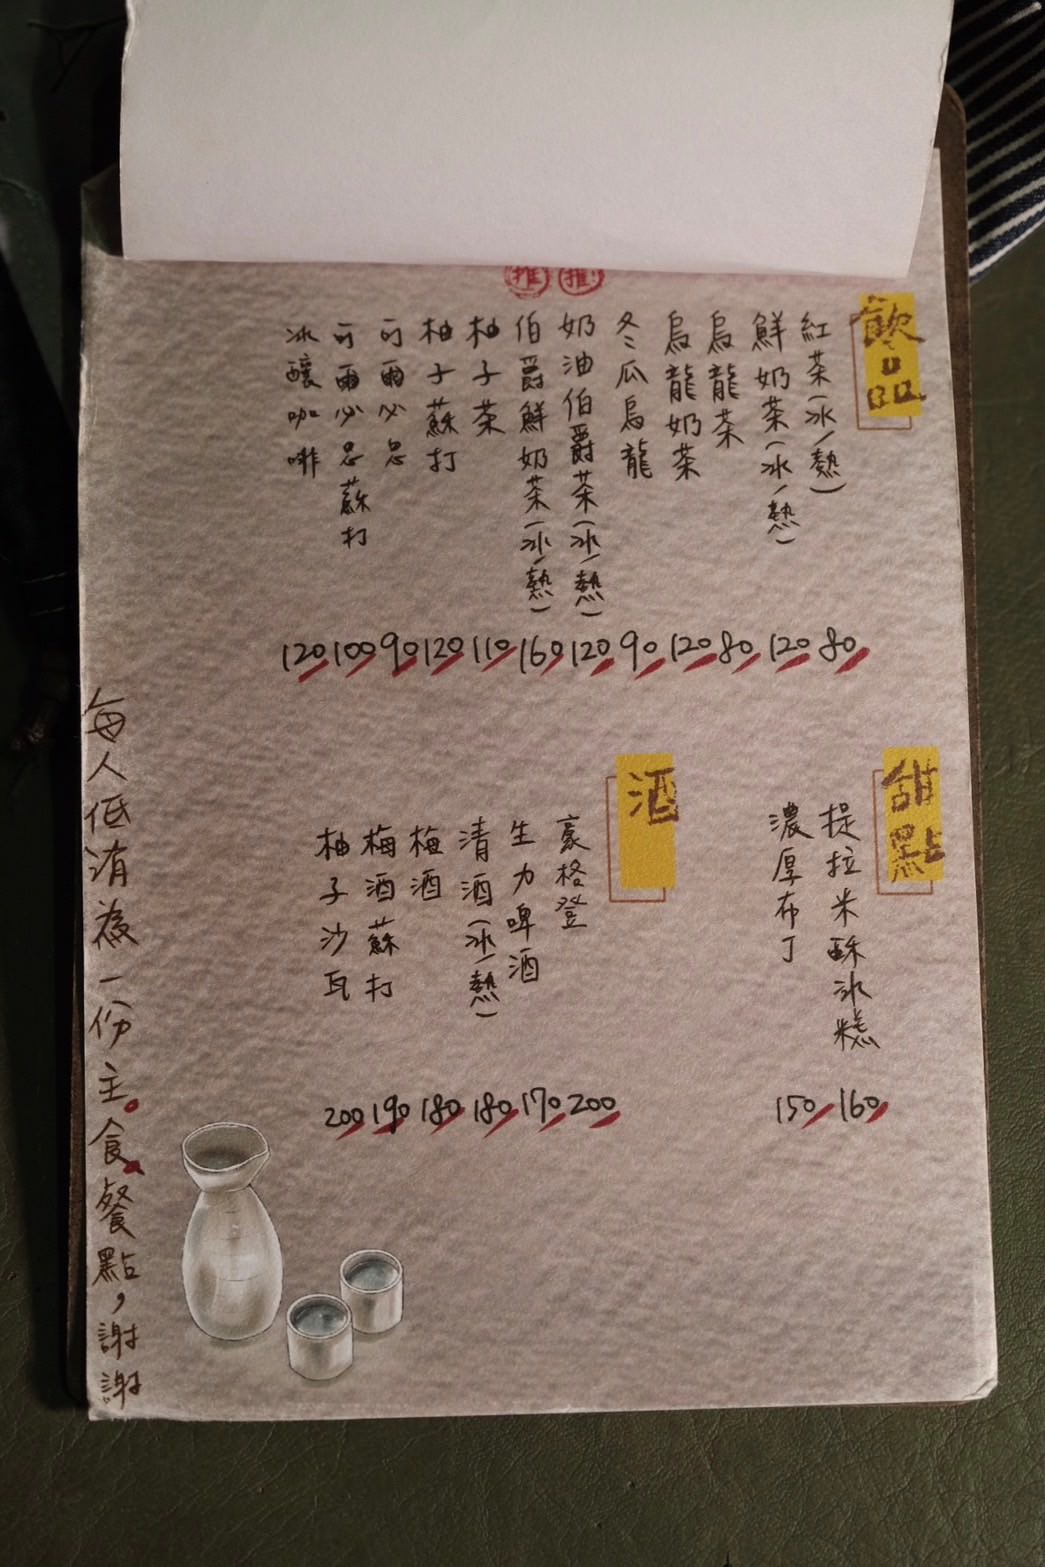 飲品
紅茶(冰/熱) 80
鮮奶茶(冰/熱) 120
烏龍茶 80
烏龍奶茶 120
冬瓜烏龍 90
推 奶油伯爵茶(冰/熱) 120
推 伯爵鮮奶茶(冰/熱) 160
柚子茶 110
柚子蘇打 120
可爾必思 90
可爾必思蘇打 100
冰釀咖啡 120
甜點
提拉米酥冰糕 160
濃厚布丁 150
酒
豪格登 200
生力啤酒 170
清酒(冰/熱) 180
梅酒 180
梅酒蘇打 190
柚子沙瓦 200
每人低消為一份主食餐點，謝謝